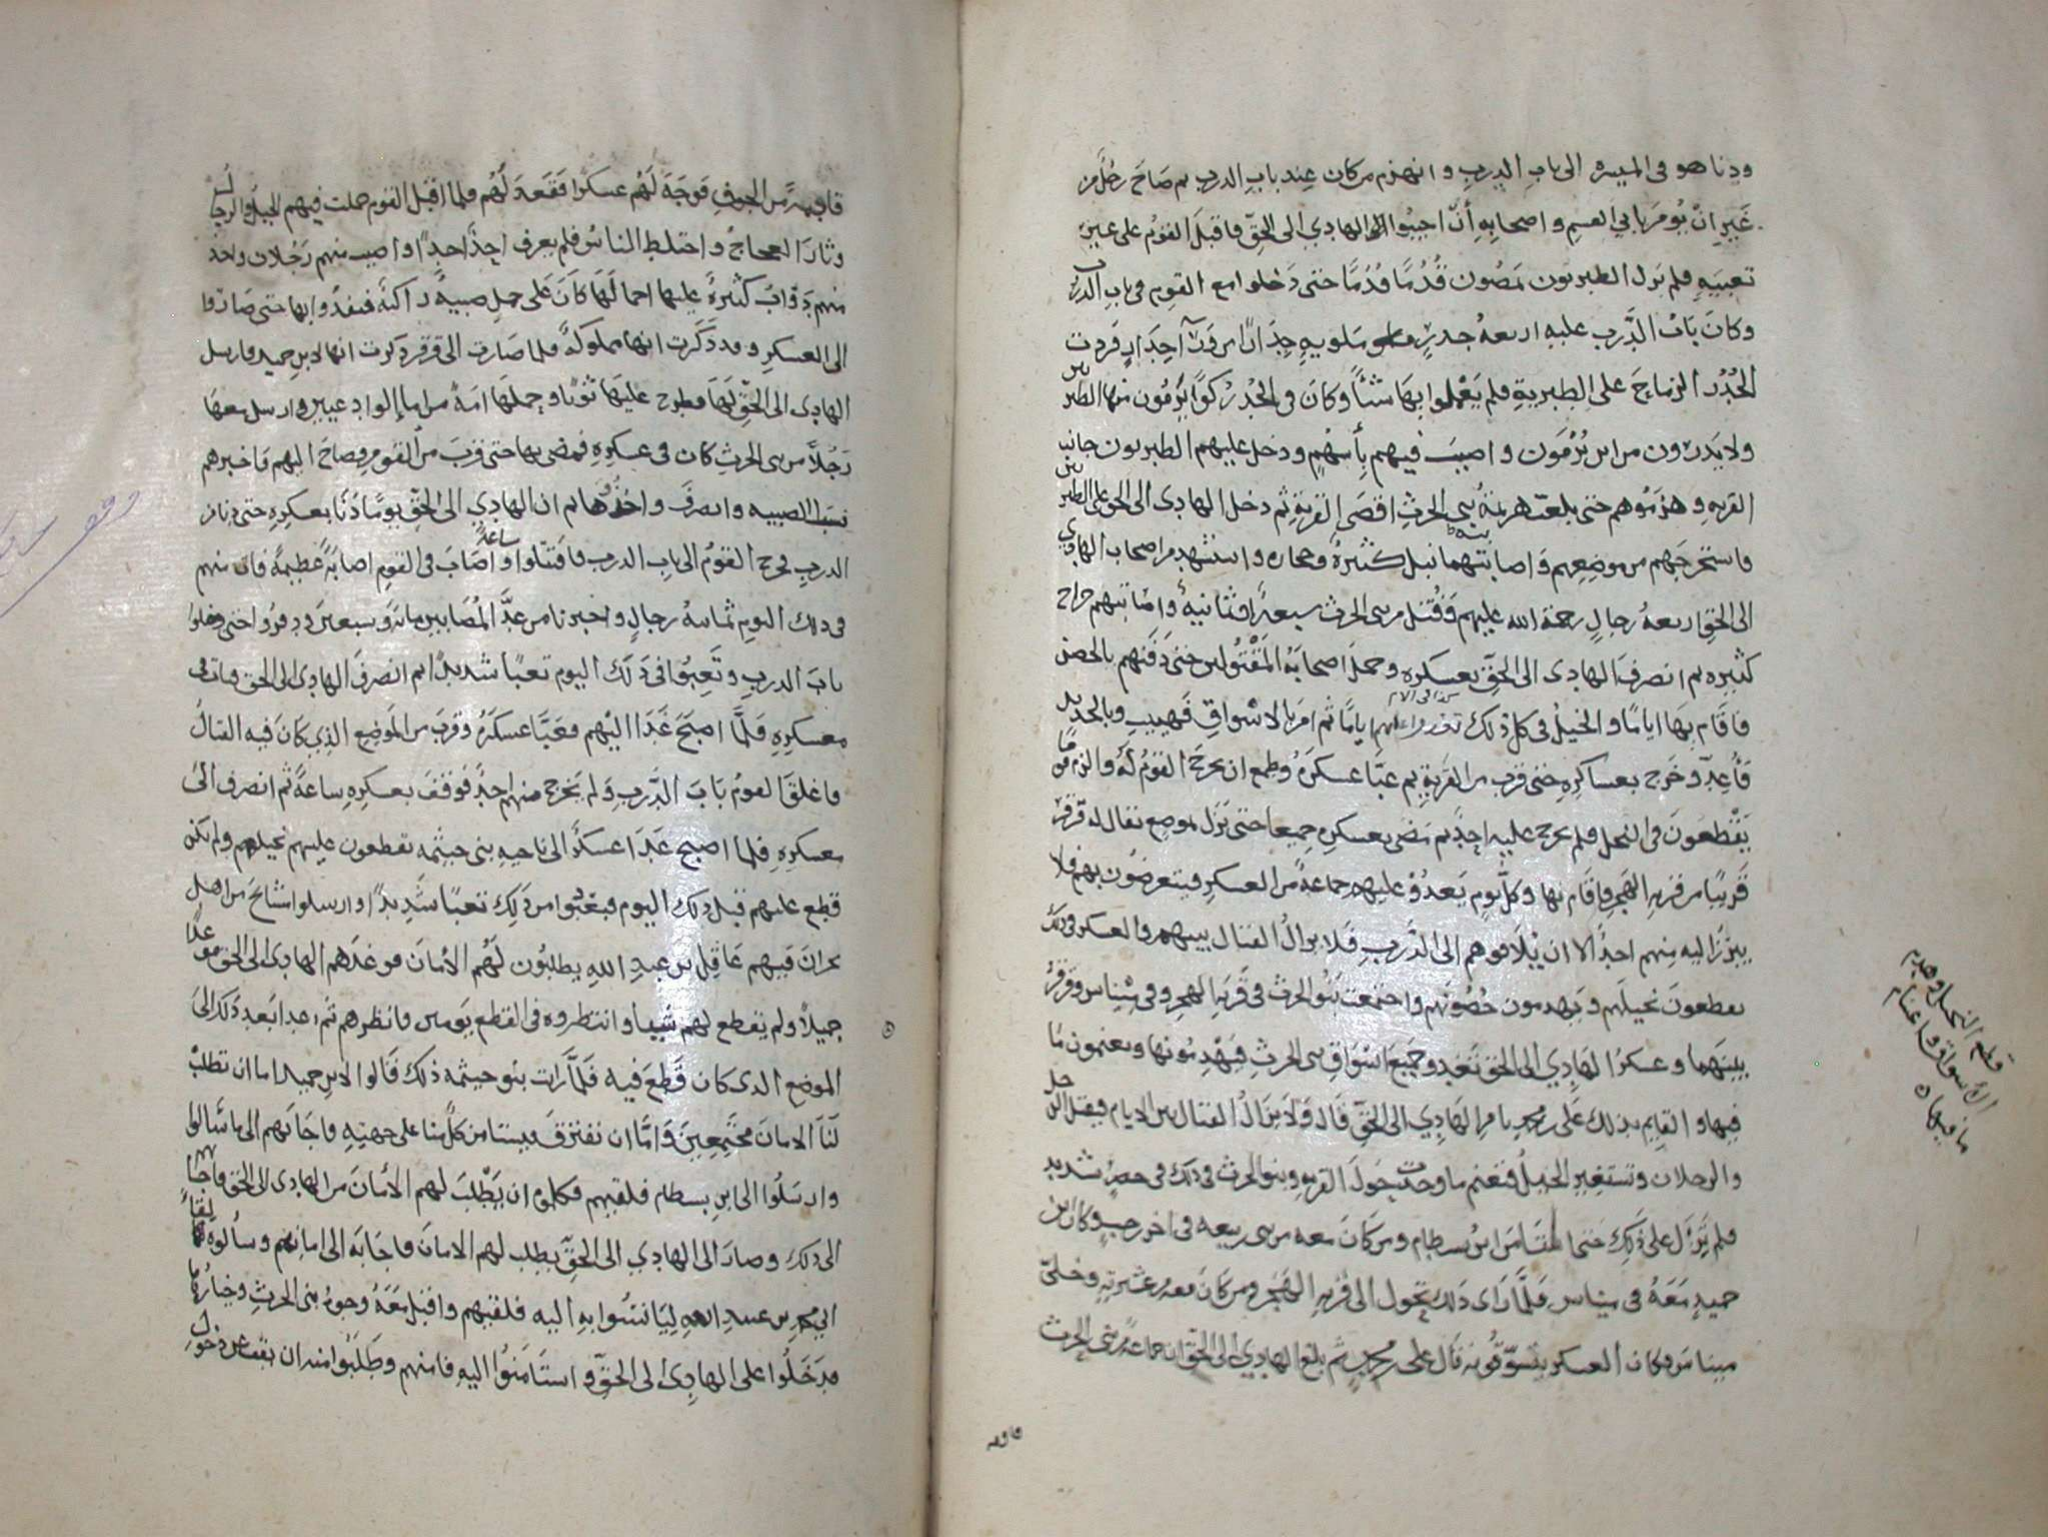 ودنا هو في الميسرة الى باب الدرب وانهزم من كان عند باب الدرب ثم صاح رجل من
غير ان يؤمر يا بي القسم واصحابه أن اجيبوا الهادي الى الحق فاقبل القوم على غير
تعبيه فلم يزل الطبريون يمضون قدما قدما حتى دخلوا مع القوم في باب الدرب
وكان باب الدرب عليه اربعة جدر ملويه جدارا من ورآ جدار فردت
الجدر الرماح على الطبرية فلم يعملوا بها شئا وكان في الجدر كوا يرمون منها الطبريين
ولا يدرون من اين يرمون واصيب فيهم بأسهم ودخل عليهم الطبريون جانب
القريه وهزموهم حتى بلغت هزيمة بني الحرث اقصى القرية ثم دخل الهادي الى الحق على الطبريين
فاستخرجهم من موضعهم واصابتهم نبل كثيرة وحجاره واستشهد من اصحاب الهادي
الى الحق اربعة رجال رحمة الله عليهم وقتل من بني الحرث سبعة او ثمانية واصابتهم جراح
كثيره ثم انصرف الهادي الى الحق بعسكره وحمل اصحابه المقتولين حتى دفنهم بالحصن
فاقام بها اياما والخيل في كل ذلك تغدوا عليهم اياما ثم امر بالاسواق فهييت وبالحديد
فأعد وخرج بعساكره حتى قرب من القرية ثم عبا عسكره وطمع ان يخرج القوم له والزم قوما
يقطعون في النخل فلم يخرج عليه احد ثم مضى بعسكره جميعا حتى نزل بموضع يقال له قرقر
قريبا من قريه الهجر فاقام بها وكل يوم يغدو عليهم جماعة من العسكر فيتعرضون بهم فلا
يبرز اليه منهم احد الا ان يلاقوهم الى الدرب فلا يزال القتال بينهم والعسكر في ذلك
يقطعون نخيلهم ويهدمون حصونهم واجتمعت بنو الحرث في قريه الهجر وفي ميناس وقرقر
بينهما وعسكر الهادي الى الحق تغدو جميع اسواق بني الحرث فيهدمونها ويغنمون ما
فيها والقايم بذلك على بن محمد بامر الهادي الى الحق قال ولا يزال القتال بين الايام فيقتل الرجل
والرجلان وتستغير الخيل فتغنم ما وجدت حول القريه وبنو الحرث في ذلك في حصر شديد
فلم يزل على ذلك حتى استامن ابن بسطام ومن كان معه من بني ربيعه في اخر رجب وكان ابن
حميد معه في ميناس فلما راى ذلك تحول الى قريه الهجر ومن كان معه من عشيرته وخلى
ميناس وكان العسكر يتسوقونه قال على بن محمد ثم بلغ الهادي الى الحق ان جماعة من بني الحرث
قادمه
قطع النخيل وهدم
الاسواق واغتنام
ما فيها
قادمة من الجوف فوجه لهم عسكرا فقعد لهم فلما اقبل القوم حملت فيهم الخيل والرجال
وثار العجاج واختلط الناس فلم يعرف احد احدا واصيب منهم رجلان واخذ
منهم دواب كثيرة عليها احمالها كان على جمل صبية راكبة فنفدوا بها حتى صاروا
الى العسكر وقد ذكرت انها مملوكة فلما صارت الى قرقر ذكرت انها لابن حميد فارسل
الهادي الى الحق لها فطرح عليها ثوبا وحملها امة من اما
رجلا من بني الحرث كان في عسكره فمضى بها حتى قرب من القوم وصاح اليهم فاخبرهم
بالصبيه وانصرف واخذوها ثم ان الهادي الى الحق يوما دنا بعسكره حتى دنا من
الدرب فخرج القوم الى باب الدرب فاقتتلوا ساعة واصاب في القوم اصابة عظيمة فمات منهم
في ذلك اليوم ثمانية رجال واخبرنا من عد المصابين مائة وسبعين وردوا حتى دخلوا
باب الدرب وتعبوا في ذلك اليوم تعبا شديدا ثم انصرف الهادي الى الحق وبات في
معسكره فلما اصبح غدا اليهم فعبا عسكره وقرب من الموضع الذي كان فيه القتال
فاغلق القوم باب الدرب ولم يخرج منهم احد فوقف بعسكره ساعة ثم انصرف الى
معسكره فلما اصبح غدا عسكر الى ناحيه بني خيثمه تقطعون عليهم نخيلهم ولم يكن
قطع عليهم قبل ذلك اليوم فتعبوا من ذلك تعبا شديدا وارسلوا مشايخ من اهل
نجران فيهم عاقل بن عبد الله يطلبون لهم الأمان فوعدهم الهادي الى الحق موعدا
جميلا ولم يقطع لهم شيا وانتظروه في القطع يومين فانظرهم ثم غدا بعد ذلك الى
الموضع الذي كان قطع فيه فلما رات بنو خيثمه ذلك قالوا لابن حميد اما ان تطلب
لنا الامان مجتمعين واما ان نفترق فيستامن كل منا على جهته فاجابهم الى ما سالوا
وارسلوا الى ابن بسطام فلقيهم فكلموه ان يطلب لهم الأمان من الهادي الى الحق فاجابهم
الى ذلك وصار الى الهادي الى الحق يطلب لهم الامان فاجابه الى امانهم وسألوه لقاء
ابي محمد بن عبيد الله ليانسوا به اليه فلقيهم واقبل معه وجوه بني الحرث وخيارها
فدخلوا على الهادي الى الحق واستامنوا اليه فامنهم وطلبوا منه ان يقف عن دخول